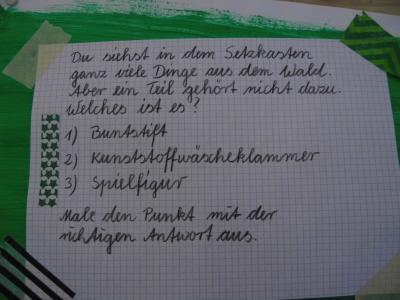 Du siehst in dem Setzkasten
ganz viele Dinge aus dem Wald.
Aber ein Teil gehört nicht dazu.
Welches ist es?
1) Buntstift
2) Kunststoffwäscheklammer
3) Spielfigur
Male den Punkt mit der
richtigen Antwort aus.